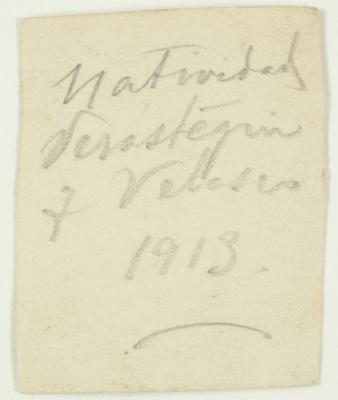 Natividad
Verástegin
y Velasco
1913.